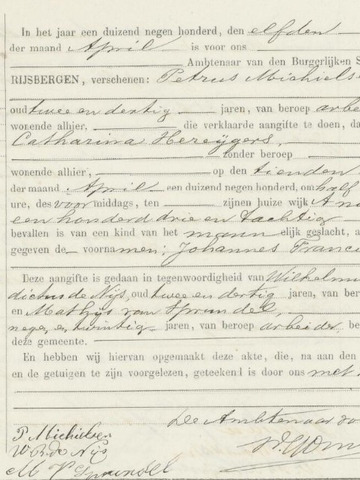 In het jaar een duizend negen honderd, den elfden
der maand April is voor ons
Ambtenaar van den Burgerlijken S
RIJSBERGEN, verschenen: Petrus Michiels
oud twee en dertig jaren, van beroep arbe
wonende alhier, die verklaarde aangifte te doen, da
Catharina Hereijgers,
zonder beroep
wonende alhier, op den tienden
der maand April een duizend negen honderd, om half
ure, des voormiddags, ten zijnen huize wijk A nu
een honderd drie en tachtig
bevallen is van een kind van het mannelijk geslacht, a
gegeven de voornamen: Johannes Franci
Deze aangifte is gedaan in tegenwoordigheid van Wilhelmu
dictus de Nijs, oud twee en dertig jaren, van ber
en Mathijs van Sprundel,
negen en twintig jaren, van beroep arbeider, b
deze gemeente.
En hebben wij hiervan opgemaakt deze akte, die, na aan den
en de getuigen te zijn voorgelezen, geteekend is door ons met
De Ambtenaar vo
P Michielsen
W B de Nijs
M V Sprundel